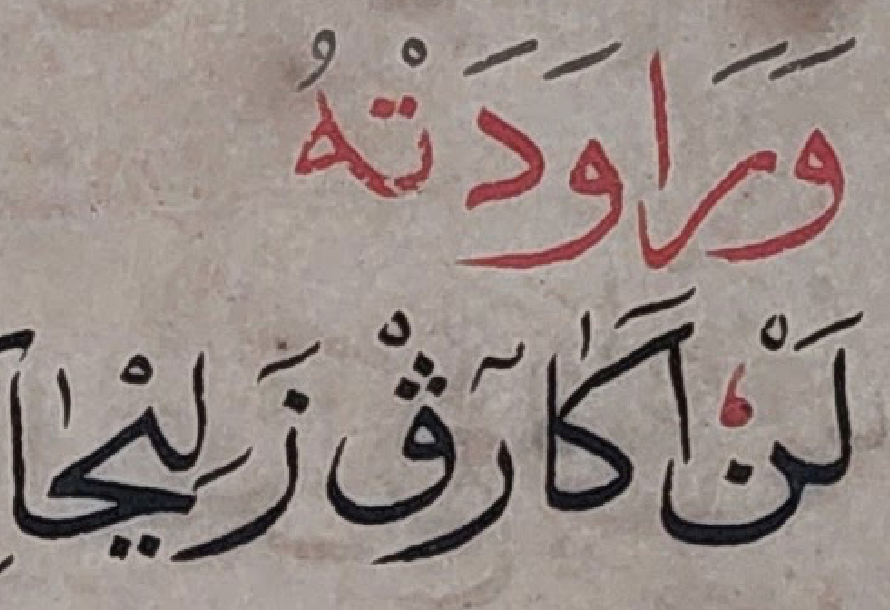 وَرَاوَدَتْهُ
لَنْ اَكٰارٓڤْ زَلِيْحٰا